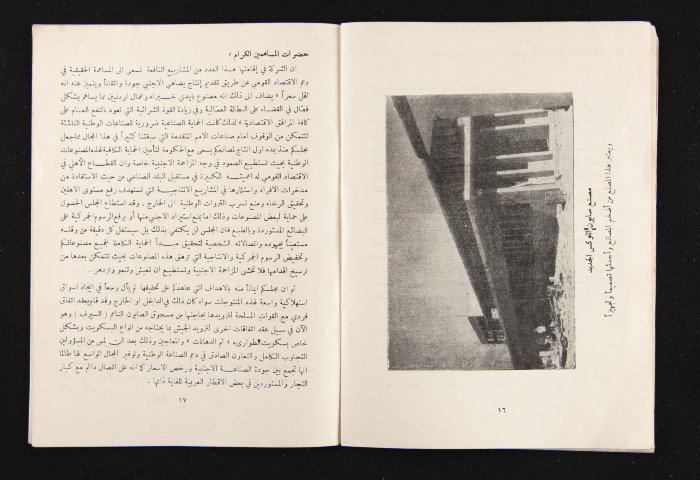 ويعتبر هذا المصنع من أضخم المصانع وأحدثها تصميماً وتجهيزاً
مصنع صابون اللوكس الجديد
١٦
حضرات المساهمين الكرام ،
ان الشركة في إقامتها هذا العدد من المشاريع النافعة تسعى الى المساهمة الحقيقية في
دعم الاقتصاد القومي عن طريق تقديم إنتاج يضاهي الاجنبي جودة واتقاناً ويتميز عنه انه
اقل سعراً يضاف الى ذلك انه مصنوع بأيدي خبراء وعمال اردنيين مما يساهم بشكل
فعال في القضاء على البطالة العمالية وفي زيادة القوة الشرائية التي تعود بالنفع العام على
كافة المرافق الاقتصادية ، لذلك كانت الحماية الصناعية ضرورية للصناعات الوطنية الناشئة
لتتمكن من الوقوف امام صناعات الامم المتقدمة التي سبقتنا كثيراً في هذا المجال مما جعل
مجلسكم منذ بدء اول انتاج لمصانعكم يسعى مع الحكومة لتأمين الحماية الكافية لهذه المصنوعات
الوطنية بحيث تستطيع الصمود في وجه المزاحمة الاجنبية خاصة وان القطاع الأهلي في
الاقتصاد القومي له اهميته الكبيرة في مستقبل البلد الصناعي من حيث الاستفادة من
مدخرات الافراد واستثمارها في المشاريع الانتاجية التي تستهدف رفع مستوى الاهلين
وتحقيق الرخاء ومنع تسرب الثروات الوطنية الى الخارج . وقد استطاع المجلس الحصول
على حماية لبعض المصنوعات وذلك اما بمنع استيراد الاجنبي منها أو برفع الرسوم الجمركية على
البضائع المستوردة وبالطبع فان المجلس لن يكتفي بذلك بل سيستغل كل دقيقة من وقته
مستعيناً بجهوده واتصالاته الشخصية لتحقيق مبدأ الحماية الكاملة لجميع مصنوعاتكم
وتخفيض الرسوم الجمركية والانتاجية التي ترهق هذه المصنوعات بحيث تتمكن بعدها من
ترسيخ اقدامها فلا تخشى المزاحمة الاجنبية وتستطيع ان تعيش وتنمو وتزدهر .
ثم ان مجلسكم ايماناً منه بالاهداف التي عاهدكم على تحقيقها لم يأل وسعاً في ايجاد اسواق
استهلاكية واسعة لهذه المنتوجات سواء كان ذلك في الداخل او الخارج وقد قام بعقد اتفاق
فردي مع القوات المسلحة لتزويدها بحاجتها من مسحوق الصابون الناعم ( السيرف ) وهو
الآن في سبيل عقد اتفاقات اخرى لتزويد الجيش بما يحتاجه من انواع البسكويت وبشكل
خاص بسكويت الطوارىء ، ثم الدهانات ، والمعاجين وذلك بعد ان لمس من المسؤولين
التجاوب الكامل والتعاون الصادق في دعم الصناعة الوطنية وتوفير المجال الواسع لها طالما
انها تجمع بين جودة الصناعة الاجنبية ورخص الاسعار كما انه على اتصال دائم مع كبار
التجار والمستوردين في بعض الاقطار العربية للغاية ذاتها .
١٧